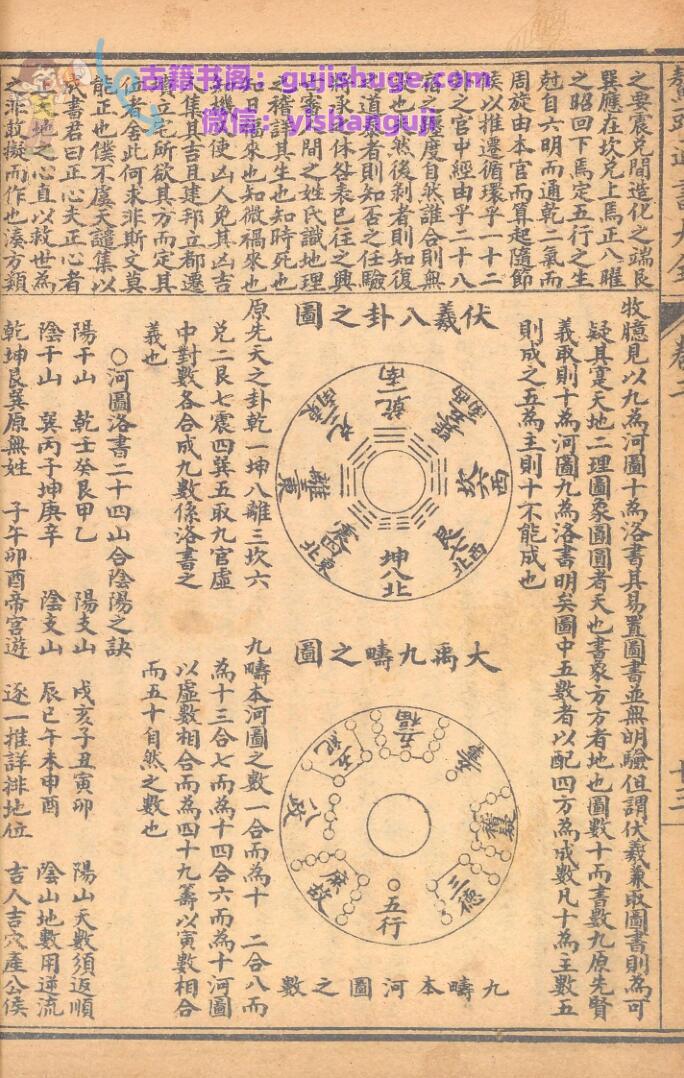 古籍书阁：gujishuge.com
微信：yishanguji
之要震兑間造化之端艮
巽應在坎兑上焉正八曜
之昭回下焉定五行之生
尅自六明而通乾二氣而
周旋由本官而算起隨節
候以推遷循環乎一十二
之官中經由乎二十八
度自然誰合則無
也然後剥者則知復
道 者則知否之任驗
永休咎表已往之興
間之姓氏識地理
之稽詳其生也知時死也
知日福來也知微禍來也
知機使凶人免其凶吉
集其吉且建邦立都遷
立宅所欲其方而定其
位者舍此何求非斯文莫
能正也僕不虞天譴集以
書君曰正心夫正心者
正天地之心直以救世為
之非敢擬而作也湊方類
牧臆見以九為河圖十為洛書其易置圖書並無明驗但謂伏羲兼取圖書則為可
疑其寔天地二理圖象圖圓者天也書象方方者地也圖數十而書數九原先賢
義取則十為河圖九為洛書明矣圖中五數者以配四方為成數凡十為主數五
則成之五為主則十不能成也
伏羲八卦之圖
乾一南
兑二東南
離三東
震四東北
坤八北
艮七西北
坎六西
巽五西南
大禹九疇之圖
五福
五紀
八政
庶徵
五行
三德
稽疑
九疇本河圖之數
原先天之卦乾一坤八離三坎六
兑二艮七震四巽五取九官虛
中對數各合成九數係洛書之
義也
九疇本河圖之數一合而為十 二合八而
為十三合七而為十四合六而為十河圖
以虛數相合而為四十九籌以寅數相合
而五十自然之數也
○河圖洛書二十四山合陰陽之訣
陽干山 乾壬癸艮甲乙 陽支山 戌亥子丑寅卯 陽山天數須返順
陰干山 巽丙丁坤庚辛 陰支山 辰巳午未申酉 陰山地數用逆流
乾坤艮巽原無姓 子午卯酉帝宮遊 逐一推詳排地位 吉人吉穴產公侯